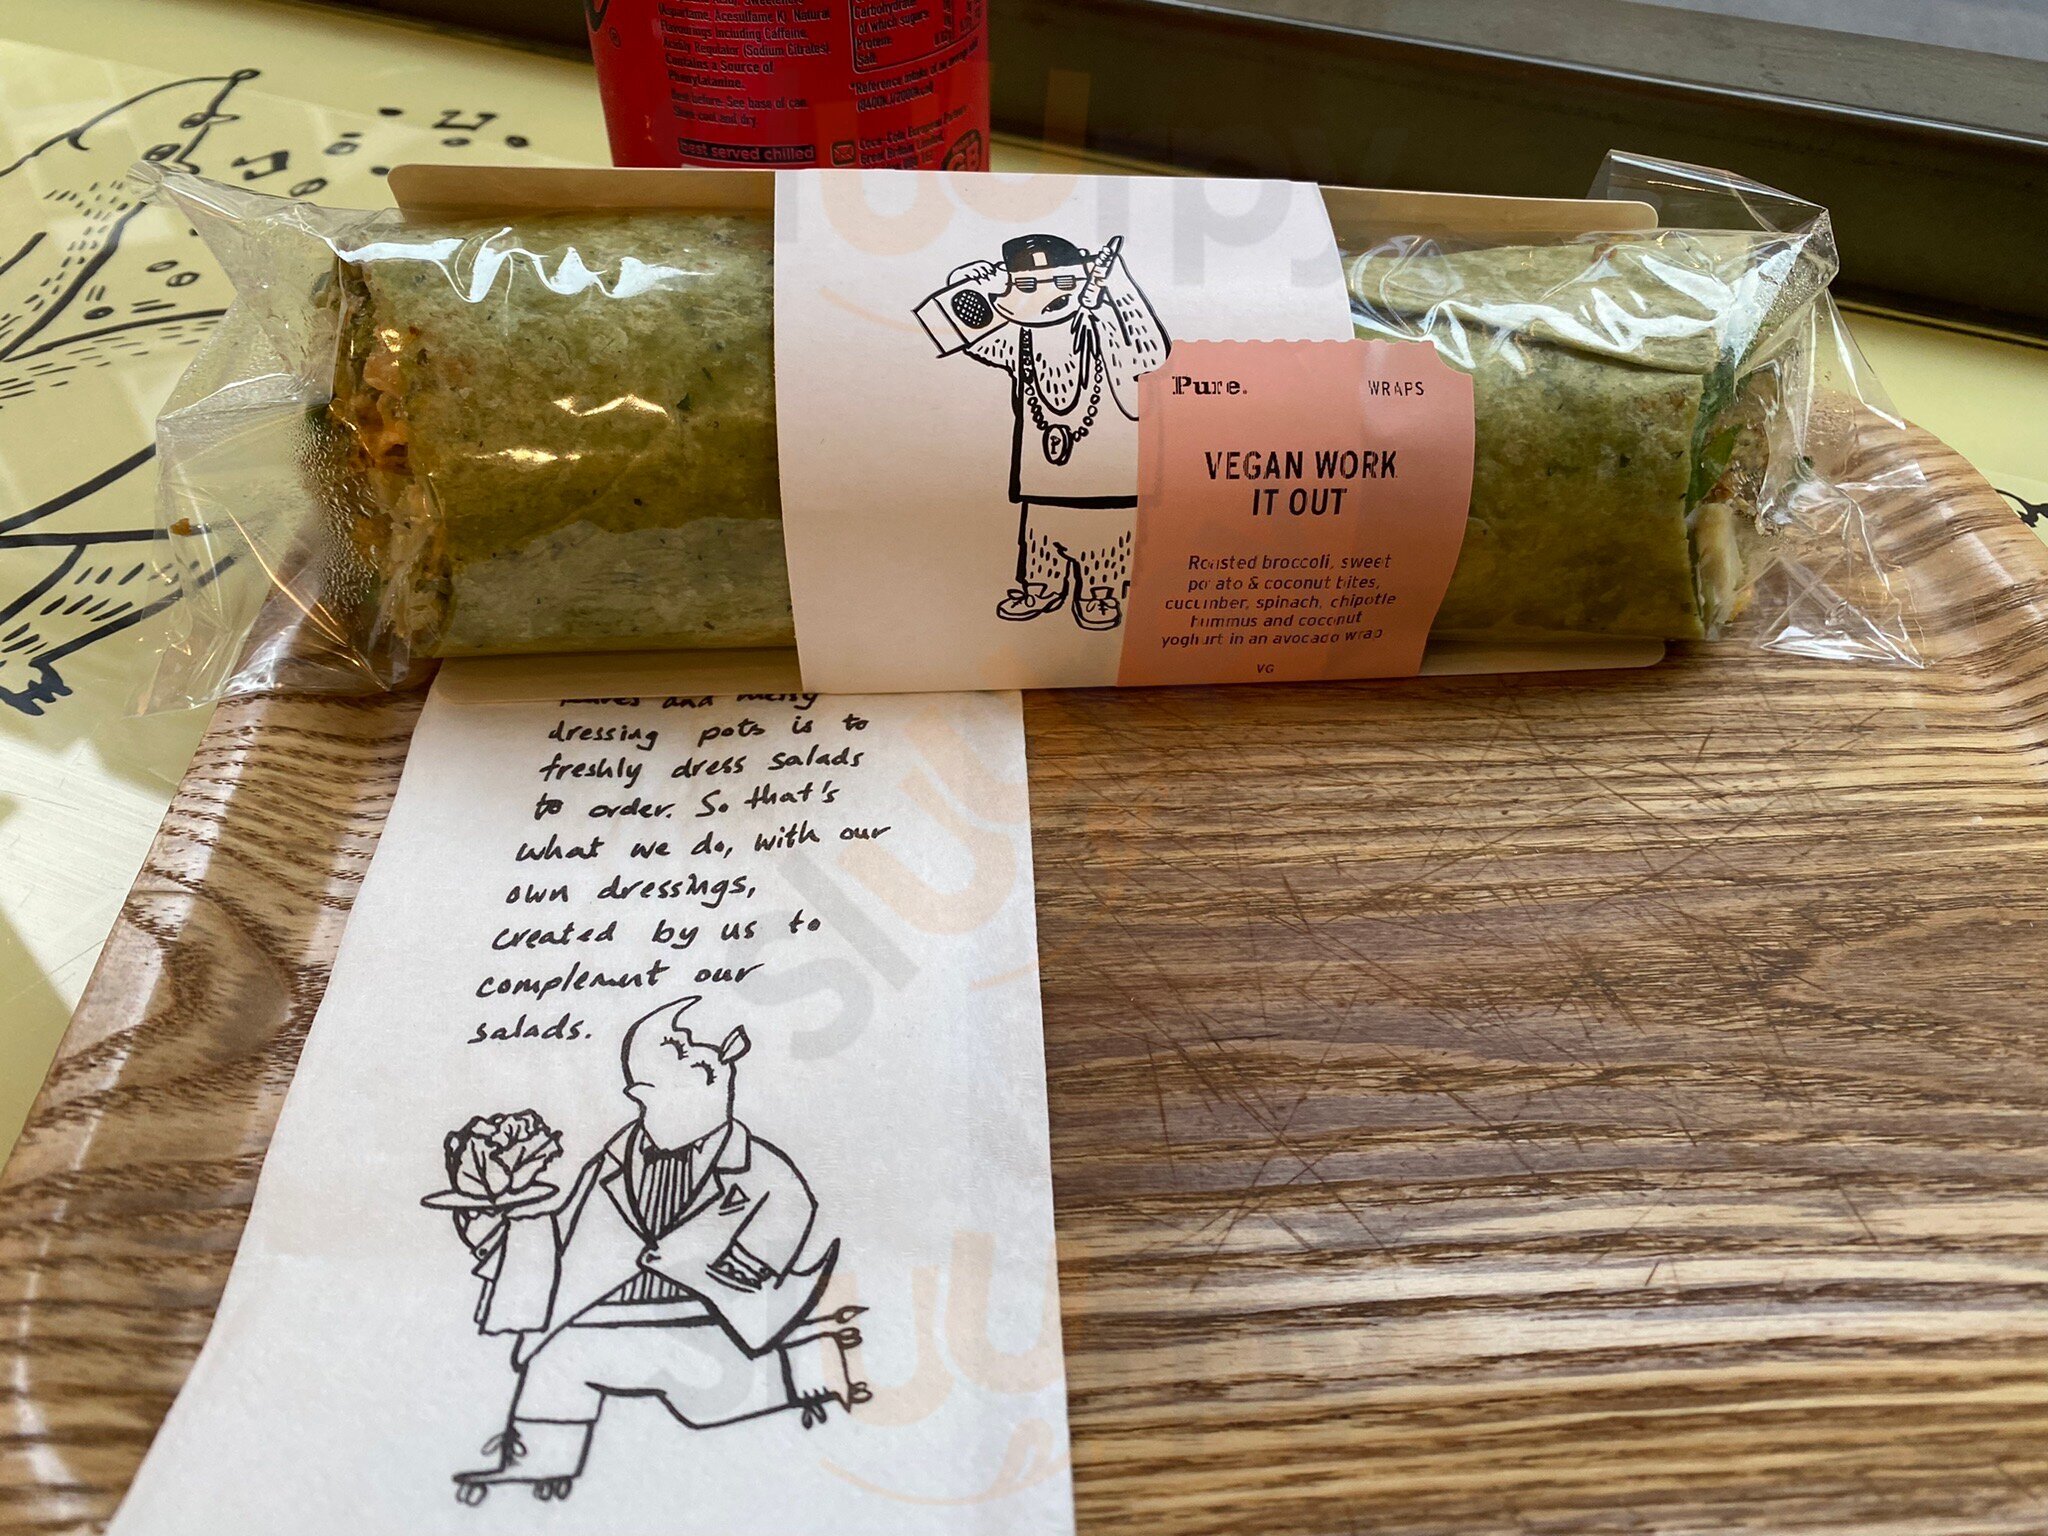 Aspartame, Acesulfame K), Natural
Flavourings Including Caffeine,
Acidity Regulator (Sodium Citrates).
Contains a Source of
Phenylalanine.
Best before: See base of can.
Store cool and dry
best served chilled
Carbohydrate
of which sugars
Protein
Salt
*Reference intake of an average adult
(8400kJ/2000kcal)
Coca-Cola European Partners
Great Britain Limited,
GB
Pure. WRAPS
VEGAN WORK
IT OUT
Roasted broccoli, sweet
potato & coconut bites,
cucumber, spinach, chipotle
hummus and coconut
yoghurt in an avocado wrap
VG
P
and messy
dressing pots is to
freshly dress salads
to order. So that's
what we do, with our
own dressings,
created by us to
complement our
salads.